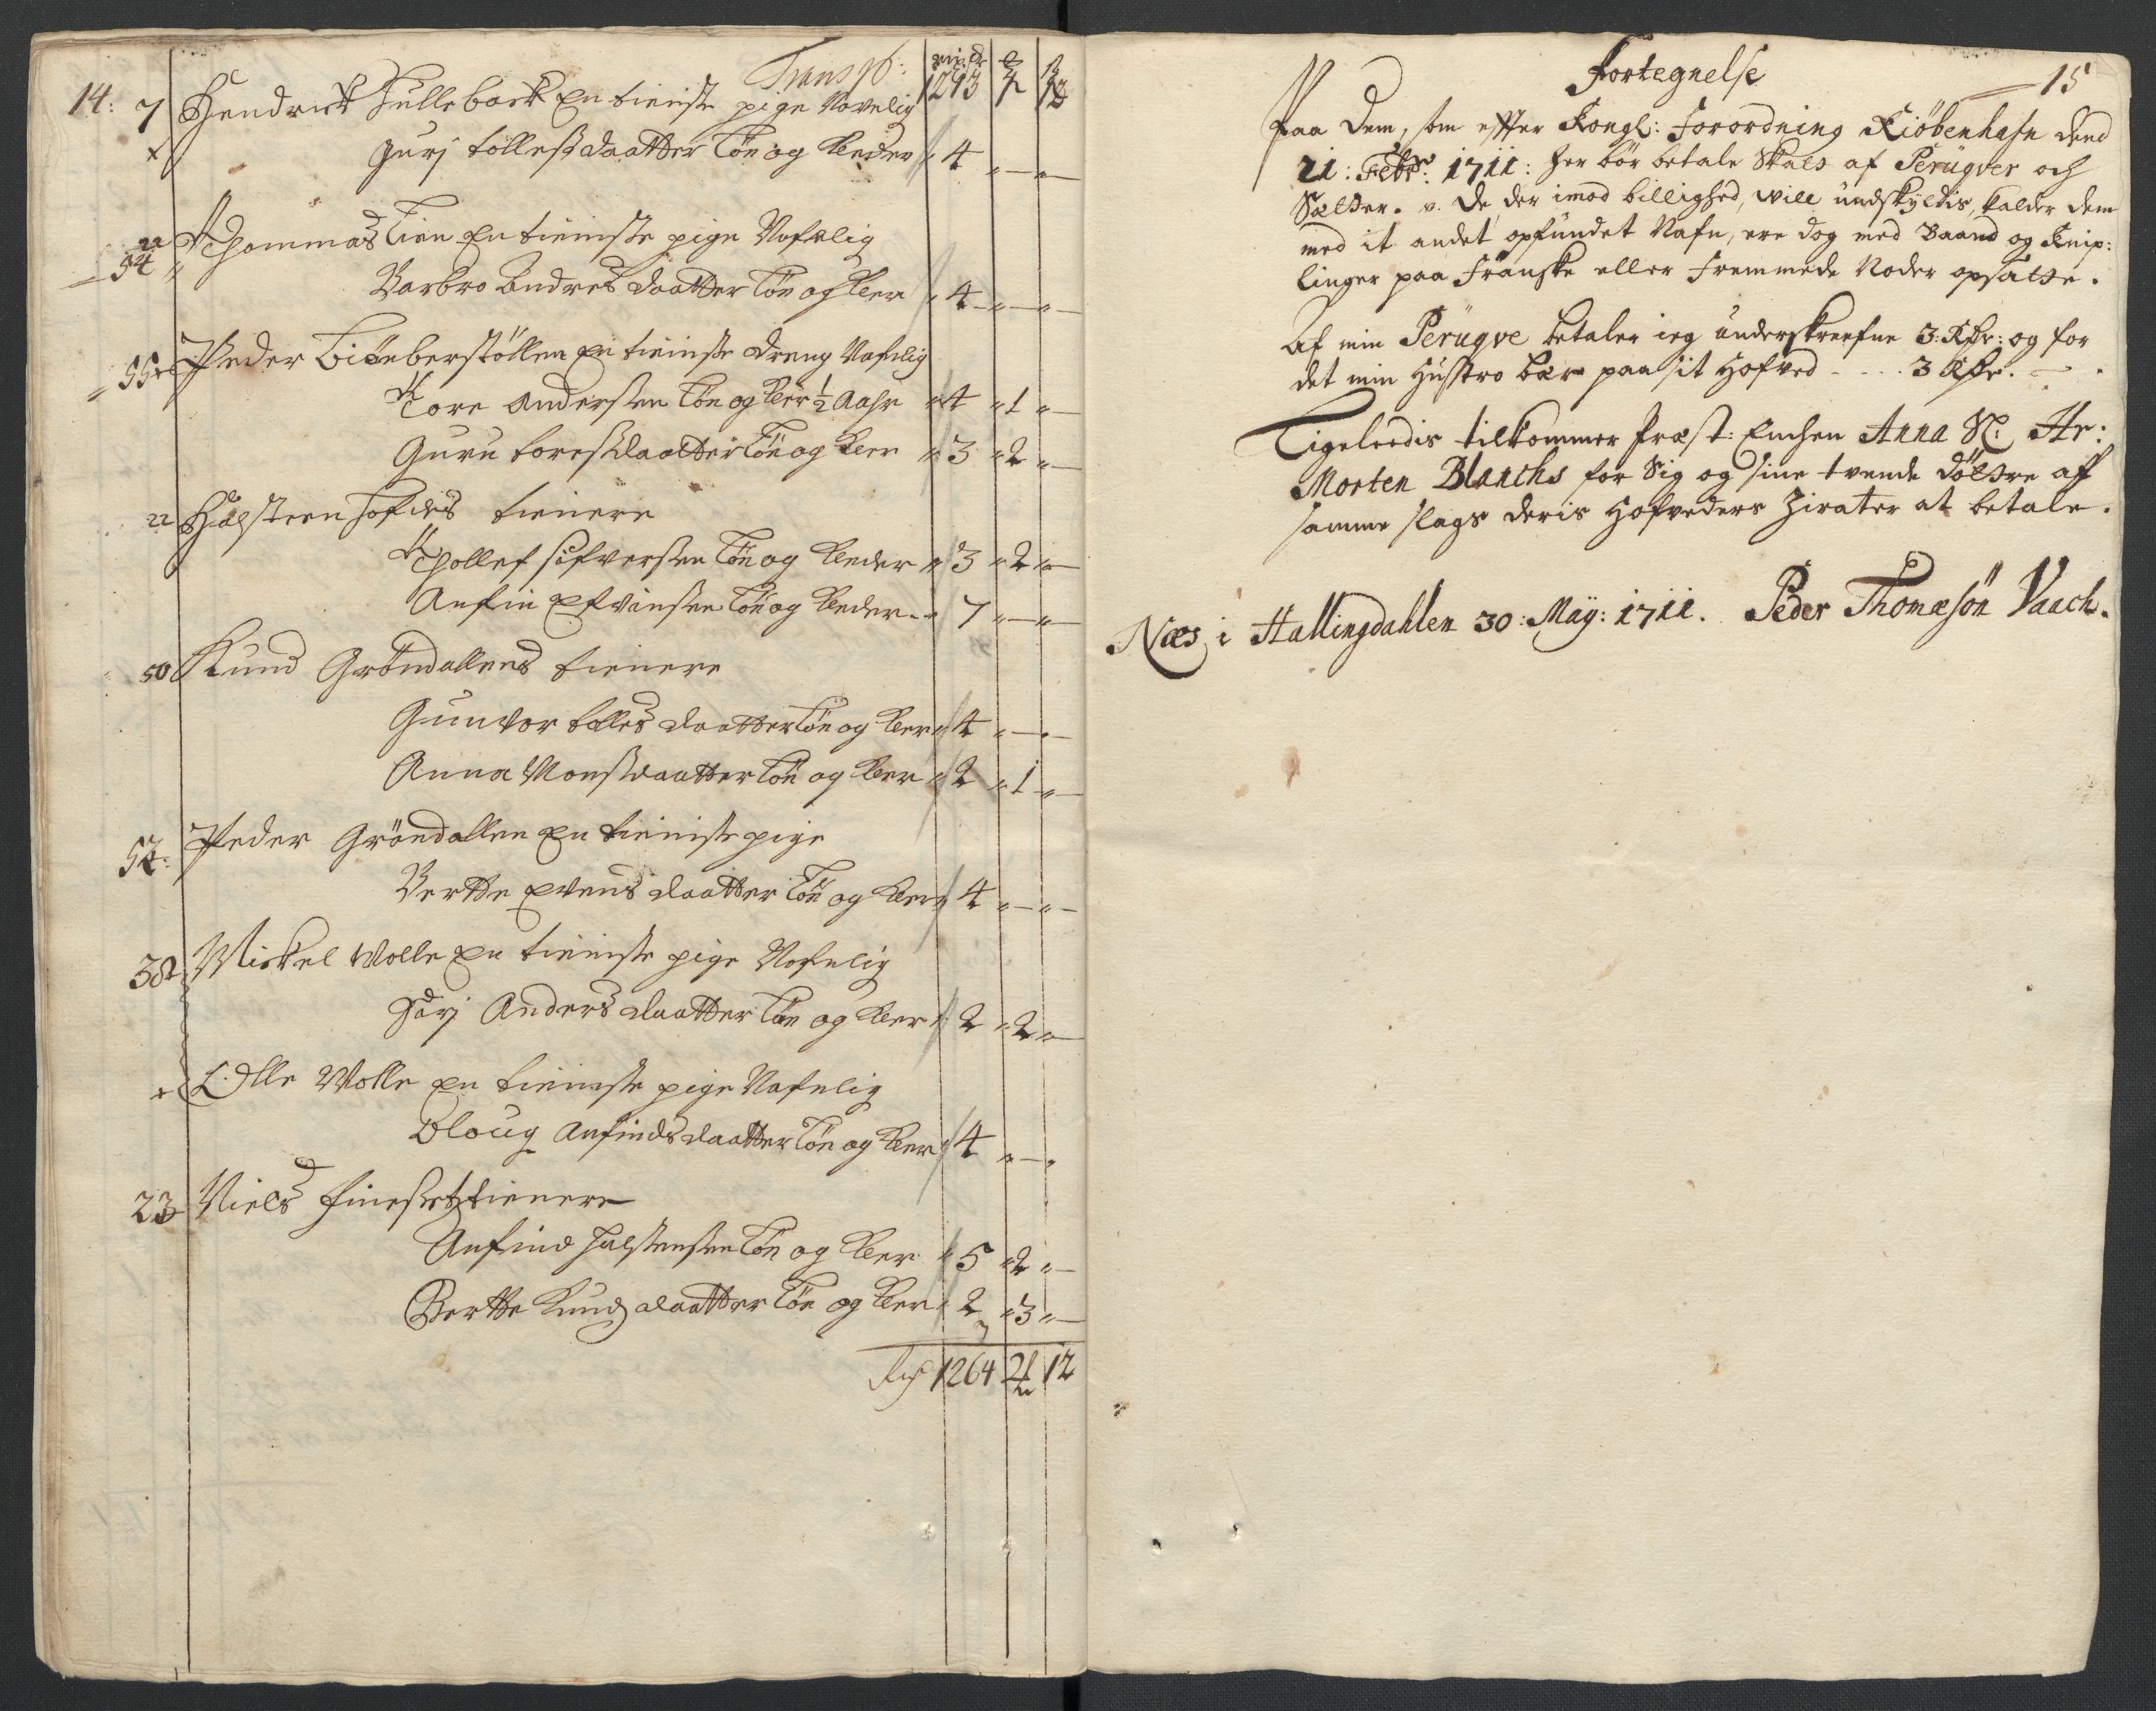 14:
Transp: 1213 1 12
7 Hendrick Hullebach En tieniste pige Navnlig
Gurj tolleßdaatter Løn og Kleder 4 " — " —
22
54 Thommas Lien En tieniste pige Nafnlig
Barbro Andres daatter Løn og kler " 4 — " — " —
55 Peder Biönberstöllen En tieniste dreng Nafnlig
Tore Anderssen Løn og kler ½ Aahr " 4 " 1 " —
Guru toresdaatter Løn og kler " 3 " 2 " —
22 Halsteen tienere
Thollef sifverssen Løn og kleder " 3 " 2 " —
Anfin Løn og kleder " 7 " — " —
50 Knud Gröndallens tienere
Gunvor tolles daatter Løn og kler " 4 " — " —
Anna Monsdaatter Løn og kler " 2 " 1 " —
52: Peder Gröndallen En tieniste pige
Bertte Evens daatter Løn og kler 4 " — " —
38 Mickel Wolle En tieniste pige Nafnlig
Anders daatter Løn og kler 2 " 2 " —
Olle Wolle En tieniste pige Nafnlig
Oloug Anfinds daatter Løn og kler 4 " — "
23 Niels tienere
Anfind halstenssen Løn og kler " 5 " 2 " —
Bertte Knudz daatter Løn og kler " 2 " 3 " —
1264 21 12
15
Fortegnelse
Paa dem, som effter Kongl: Forordning Kiöbenhafn dend
21: Febr: 1711: her bör betale Skat af Perüqver och
Sætter. v. De, der imod billighed, will undskyldis, kalder dem
med it andet opfündet Nafn, ere dog med Baand og Knip:
linger paa Franske eller Fremmede Moder opsatte.
Af min Perüqve betaler ieg underskreefne 3: Rdr: og for
det min Hüstro bær paa sit Hofved - - - - 3 Rdr. —
Ligeleedis tilkommer Præst: Enchen Anna Sl: Hr:
Morten Blanchs for Sig og sine tvende döttre af
samme slags deris Hofveders Zirater at betale.
Næs i Hallingdahlen 30: Maÿ: 1711. Peder Thomæsön Vaach.